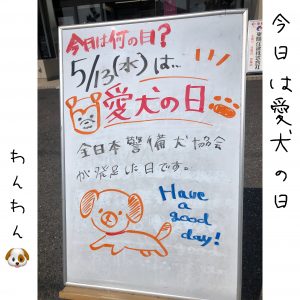 今日は愛犬の日
今日は何の日?
5/13(水)は..
愛犬の日
全日本警備犬協会
が発足した日です。
Have
a
good
day!
わんわん